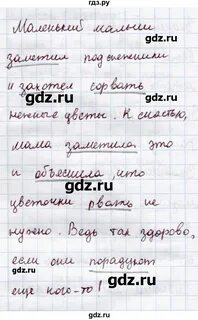 gdz.ru
Маленький малыш
заметил подснежники
и захотел сорвать
gdz.ru gdz.ru
нежные цветы. К счастью,
мама заметила это
и объяснила, что
gdz.ru gdz.ru
цветочки рвать не
нужно. Ведь так здорово,
если они порадуют
gdz.ru gdz.ru
ещё кого-то!